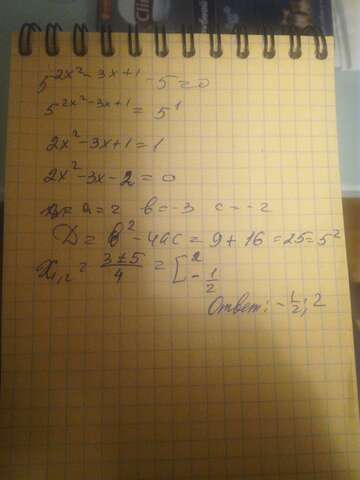 Clin
5^{2x²-3x+1} - 5 = 0
5^{2x²-3x+1} = 5^1
2x²-3x+1=1
2x²-3x-2=0
a=2 b=-3 c=-2
D = b²-4ac = 9+16=25=5²
x_{1,2} = \frac{3±5}{4} = [2
-\frac{1}{2}
Ответ: -\frac{1}{2}; 2